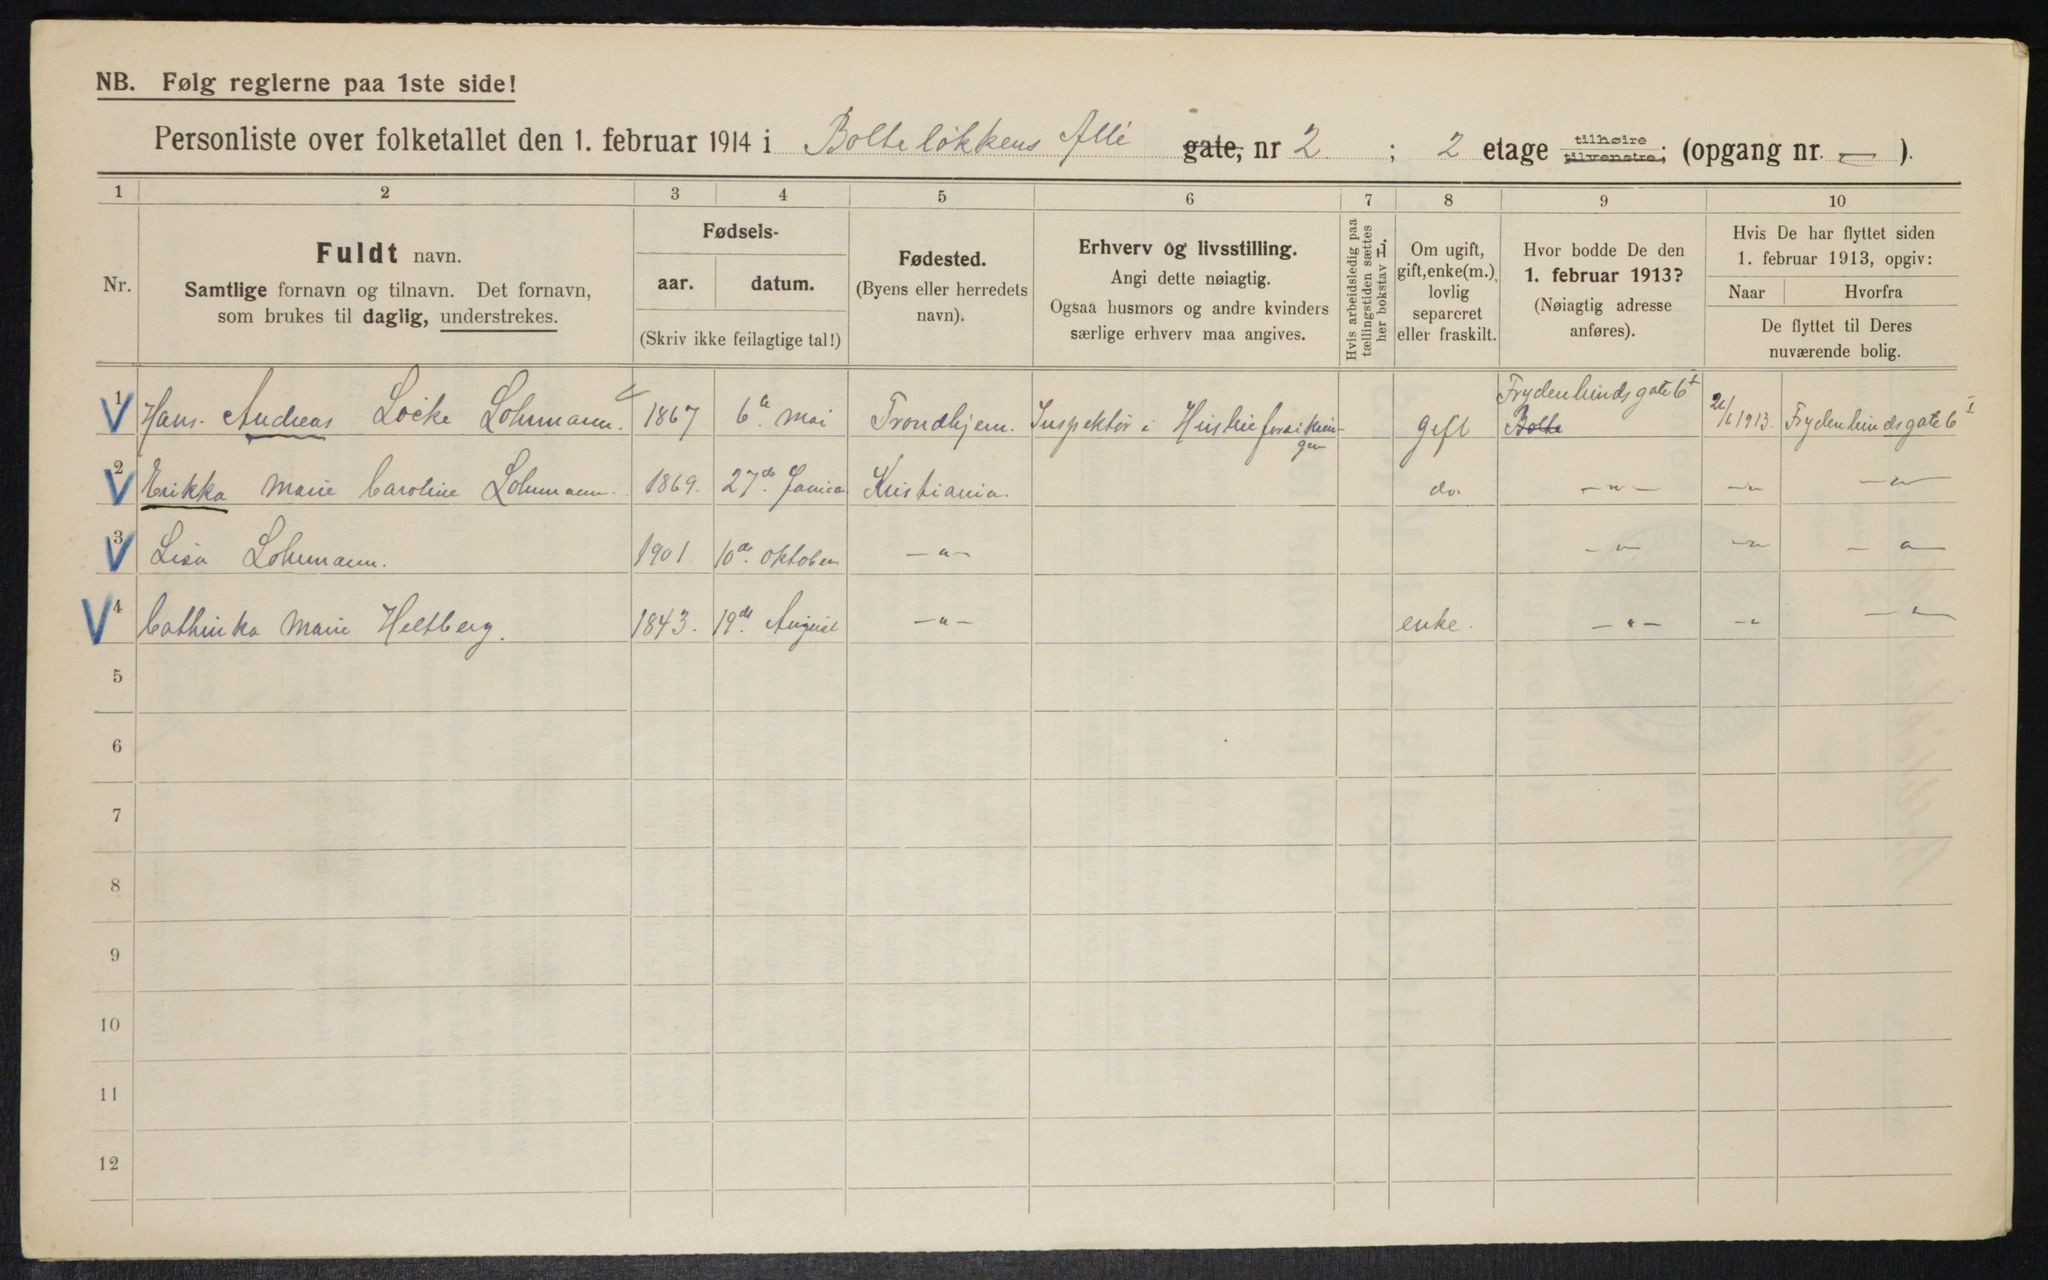 NB. Følg reglerne paa 1ste side!
Personliste over folketallet den 1. februar 1914 i Bolteløkkens Allé gate, nr 2 ; 2 etage tilhøire tilvenstre; (opgang nr. — ).
1 2 3 4 5 6 7 8 9 10
Nr.
Fuldt navn.
Samtlige fornavn og tilnavn. Det fornavn,
som brukes til daglig, understrekes.
Fødsels-
aar. datum.
(Skriv ikke feilagtige tal!)
Fødested.
(Byens eller herredets
navn).
Erhverv og livsstilling.
Angi dette nøiagtig.
Ogsaa husmors og andre kvinders
særlige erhverv maa angives.
Hvis arbeidsledig paa
tællingstiden sættes
her bokstav L.
Om ugift,
gift, enke(m.),
lovlig
separeret
eller fraskilt.
Hvor bodde De den
1. februar 1913?
(Nøiagtig adresse
anføres).
Hvis De har flyttet siden
1. februar 1913, opgiv:
Naar Hvorfra
De flyttet til Deres
nuværende bolig.
1 Hans Andreas Locke Lohmann. 1867 6te mai Trondhjem. Inspektør i gift Frydenlunds gate 6 I Bolte 1913. Frydenlundsgate 6 I
2 Erikka Marie Caroline Lohmann. 1869. 27de Kristiania. do. —"— —"— —"—
3 Lisa Lohmann. 1901. 10de oktober —"— —"— —"— —"—
4 Cathinka Marie Heltberg. 1843. 19de August —"— enke. —"— —"— —"—
5
6
7
8
9
10
11
12